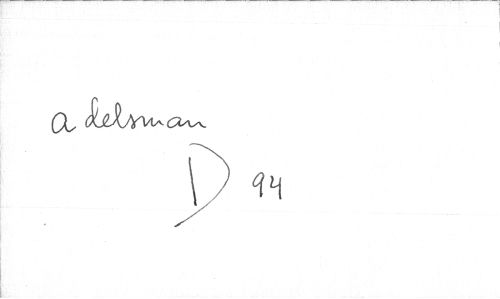 adelsman
D 94